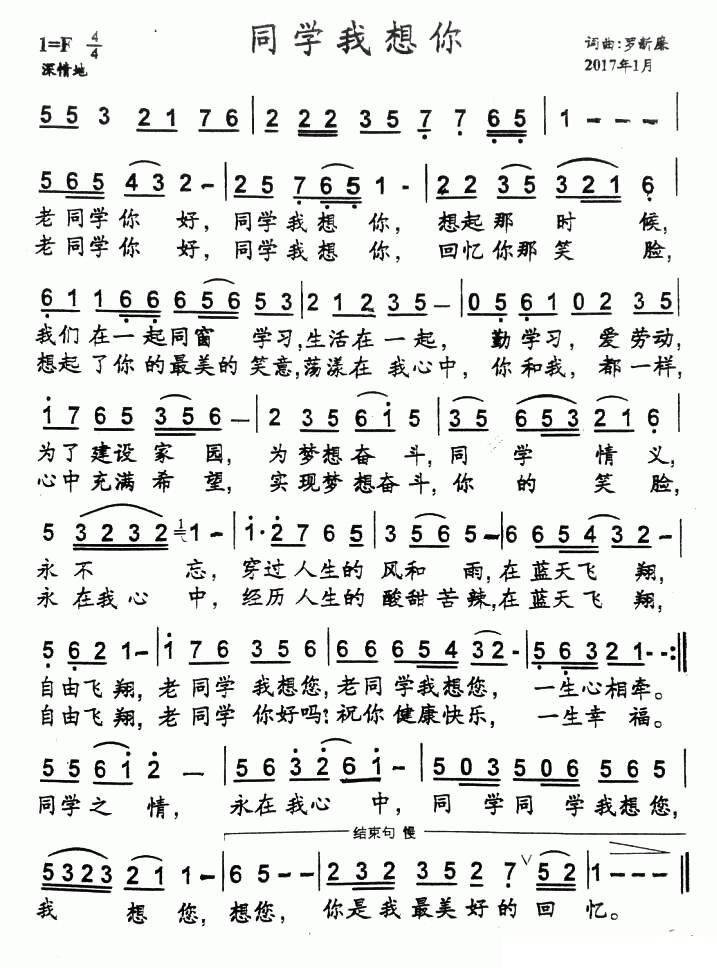 同学我想你
1=F 4/4
深情地
词曲:罗新廉
2017年1月
5 5 3 2 1 7 6 | 2 2 2 2 3 5 7 7 6 5 | 1 - - -
5 6 5 4 3 2 - | 2 5 7 6 5 1 - | 2 2 3 5 3 2 1 6
老同学你 好, 同学我想 你, 想起那 时 候,
老同学你 好, 同学我想 你, 回忆你那笑 脸,
6 1 1 6 6 6 5 6 5 3 | 2 1 2 3 5 - | 0 5 6 1 0 2 3 5
我们在一起同窗 学习,生活在一起, 勤学习, 爱劳动,
想起了你的最美的笑意,荡漾在我心中, 你和我, 都一样,
1 7 6 5 3 5 6 - | 2 3 5 6 1 5 | 3 5 6 5 3 2 1 6
为了建设家 园, 为梦想奋 斗,同 学 情 义,
心中充满希 望, 实现梦想奋斗,你 的 笑 脸,
5 3 2 3 2 1 1 - | 1· 2 7 6 5 | 3 5 6 5 - | 6 6 5 4 3 2 -
永 不 忘, 穿过人生的 风和 雨,在蓝天飞 翔,
永在我心 中, 经历人生的 酸甜苦辣,在蓝天飞 翔,
5 6 2 1 - | 1 7 6 3 5 6 | 6 6 6 5 4 3 2 - | 5 6 3 2 1 - - :||
自由飞翔, 老同学 我想您,老同学我想您, 一生心相牵。
自由飞翔, 老同学 你好吗?祝你健康快乐, 一生幸 福。
5 5 6 1 2 - | 5 6 3 2 6 1 - | 5 0 3 5 0 6 5 6 5
同学之 情, 永在我心 中, 同 学同 学我想您,
结束句 慢
5 3 2 3 2 1 1 - | 6 5 - - | 2 3 2 3 5 2 7 ∨ 5 2 | 1 - - -
我 想 您, 想您, 你是我最美好的 回 忆。